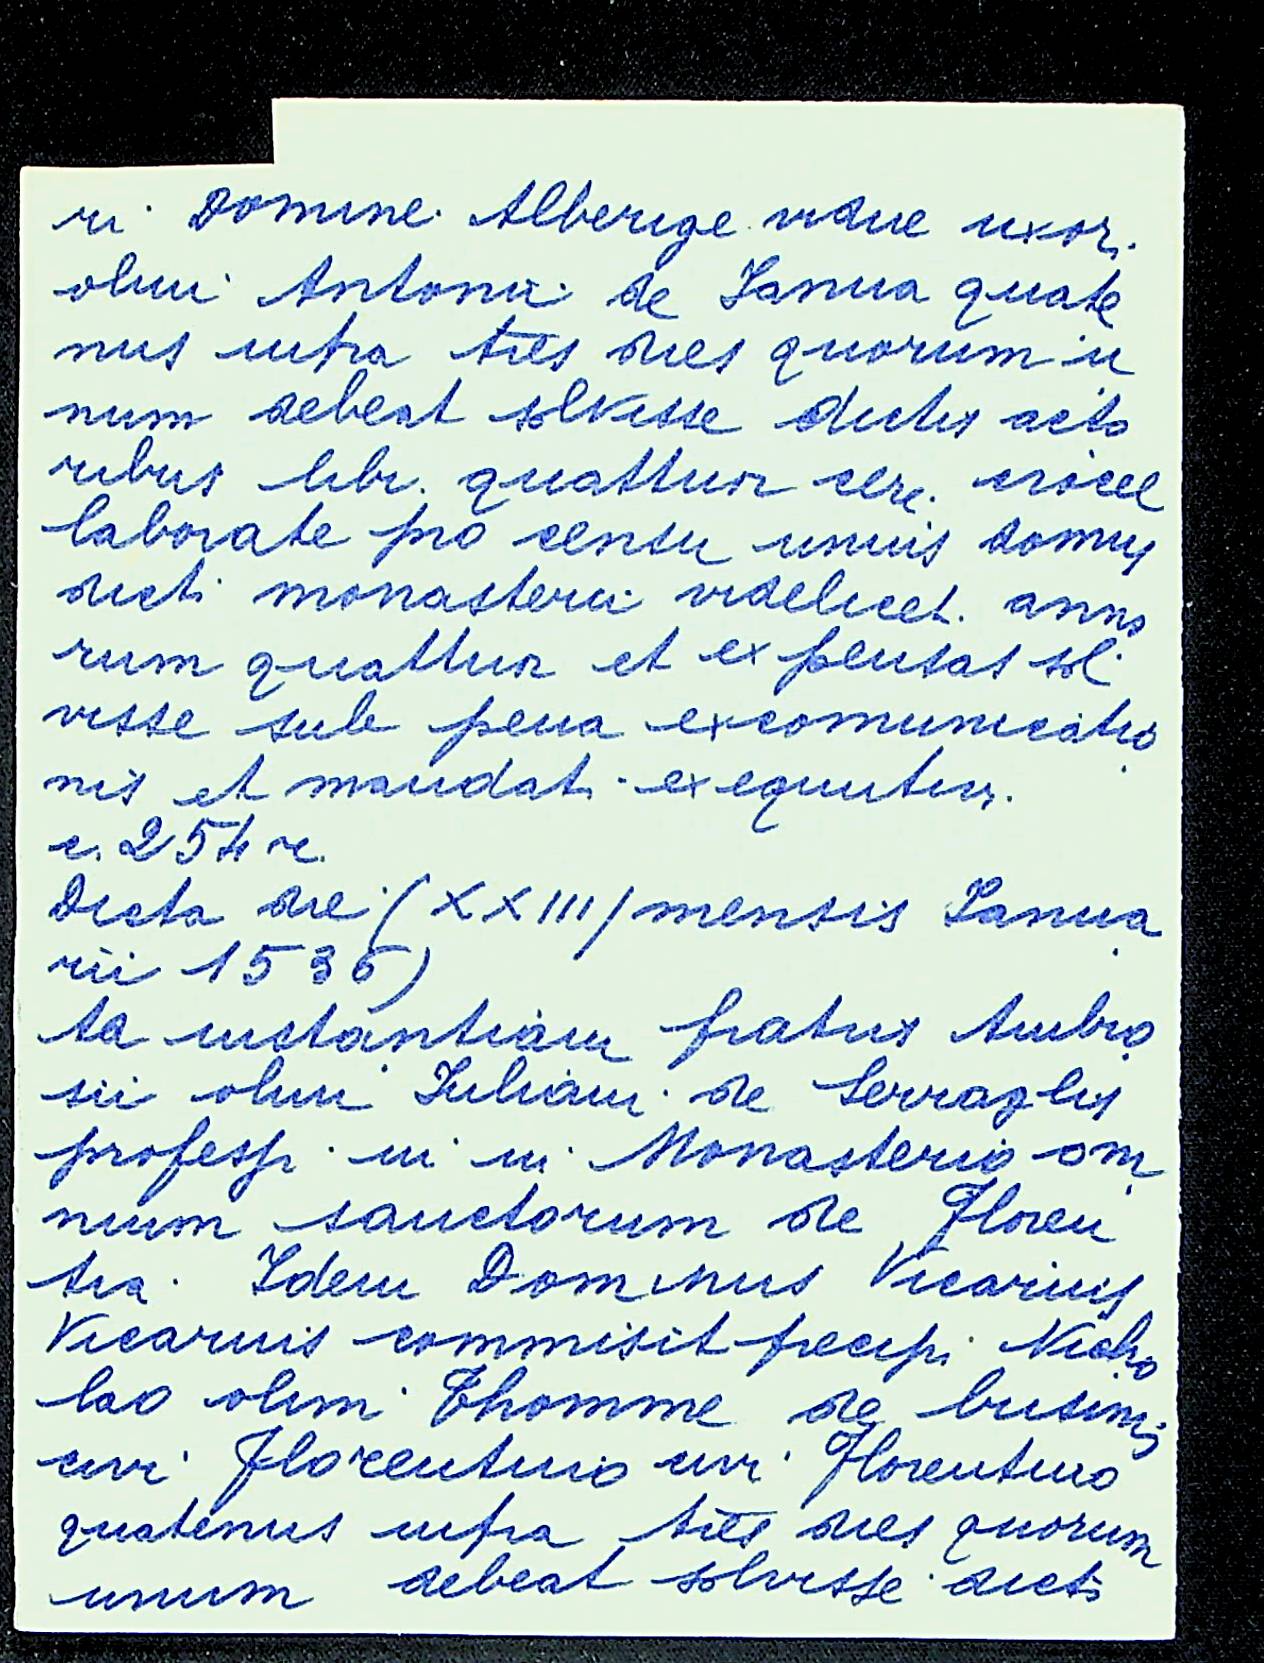 ri Domine Alberige vidue uxor.
olim Antonii de Ianua quate
nus infra tres dies quorum u
num debeat solvisse dictis acto
ribus libr. quattuor cere
laborate pro censu unius domus
dicti monasterii videlicet anno
rum quattuor et expensas sol
visse sub pena excomunicatio
nis et mandati exequutur.
c. 254 r.
Dicta die (XXIII mensis Ianua
rii 1536)
ta instantiam fratris Ambro
sii olim Iuliani de Serraglis
professi in in Monasterio om
nium sanctorum de Floren
tia. Idem Dominus Vicarius
Vicarius commisit precipi Nicho
lao olim Thomme de businis
civi Florentino civi Florentino
quatenus infra tres dies quorum
unum debeat solvisse dicti